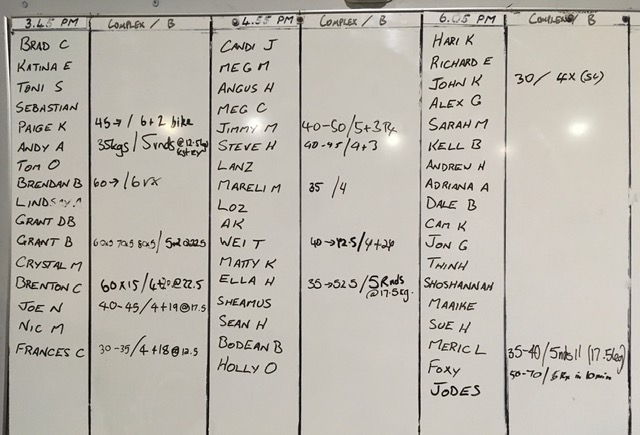 3.45 PM COMPLEX / B
BRAD C
KATINA E
TONI S
SEBASTIAN
PAIGE K 45→ / 6+2 bike
ANDY A 35kgs / 5rnds @12.5kg
TOM O
BRENDAN B 60→ / 6 rx
LINDSAY
GRANT DB
GRANT B 60x5 70x5 80x5 / 5+2@22.5
CRYSTAL M
BRENTON C 60x15 / 4+20@22.5
JOE N 40-45 / 4+19@17.5
NIC M
FRANCES C 30-35 / 4+18@12.5
4.55 PM COMPLEX / B
CANDI J
MEG M
ANGUS H
MEG C
JIMMY M 40-50 / 5+3 Rx
STEVE H 40-45 / 4+3
LANZ
MARELI M 35 / 4
LOZ
AK
WEI T 40→42.5 / 4+20
MATTY K
ELLA H 35→52.5 / 5 Rnds
@17.5kg.
SHEAMUS
SEAN H
BODEAN B
HOLLY O
6.05 PM COMPLEX / B
HARI K
RICHARD E
JOHN K 30 / 4x (sc)
ALEX G
SARAH M
KELL B
ANDREW H
ADRIANA A
DALE B
CAM K
JON G
THINH
SHOSHANNAH
MAAIKE
SUE H
MERIC L 35-40 / 5rnds!! (17.5kg)
FOXY 50-70 / 6 Rx in 10min
JODES